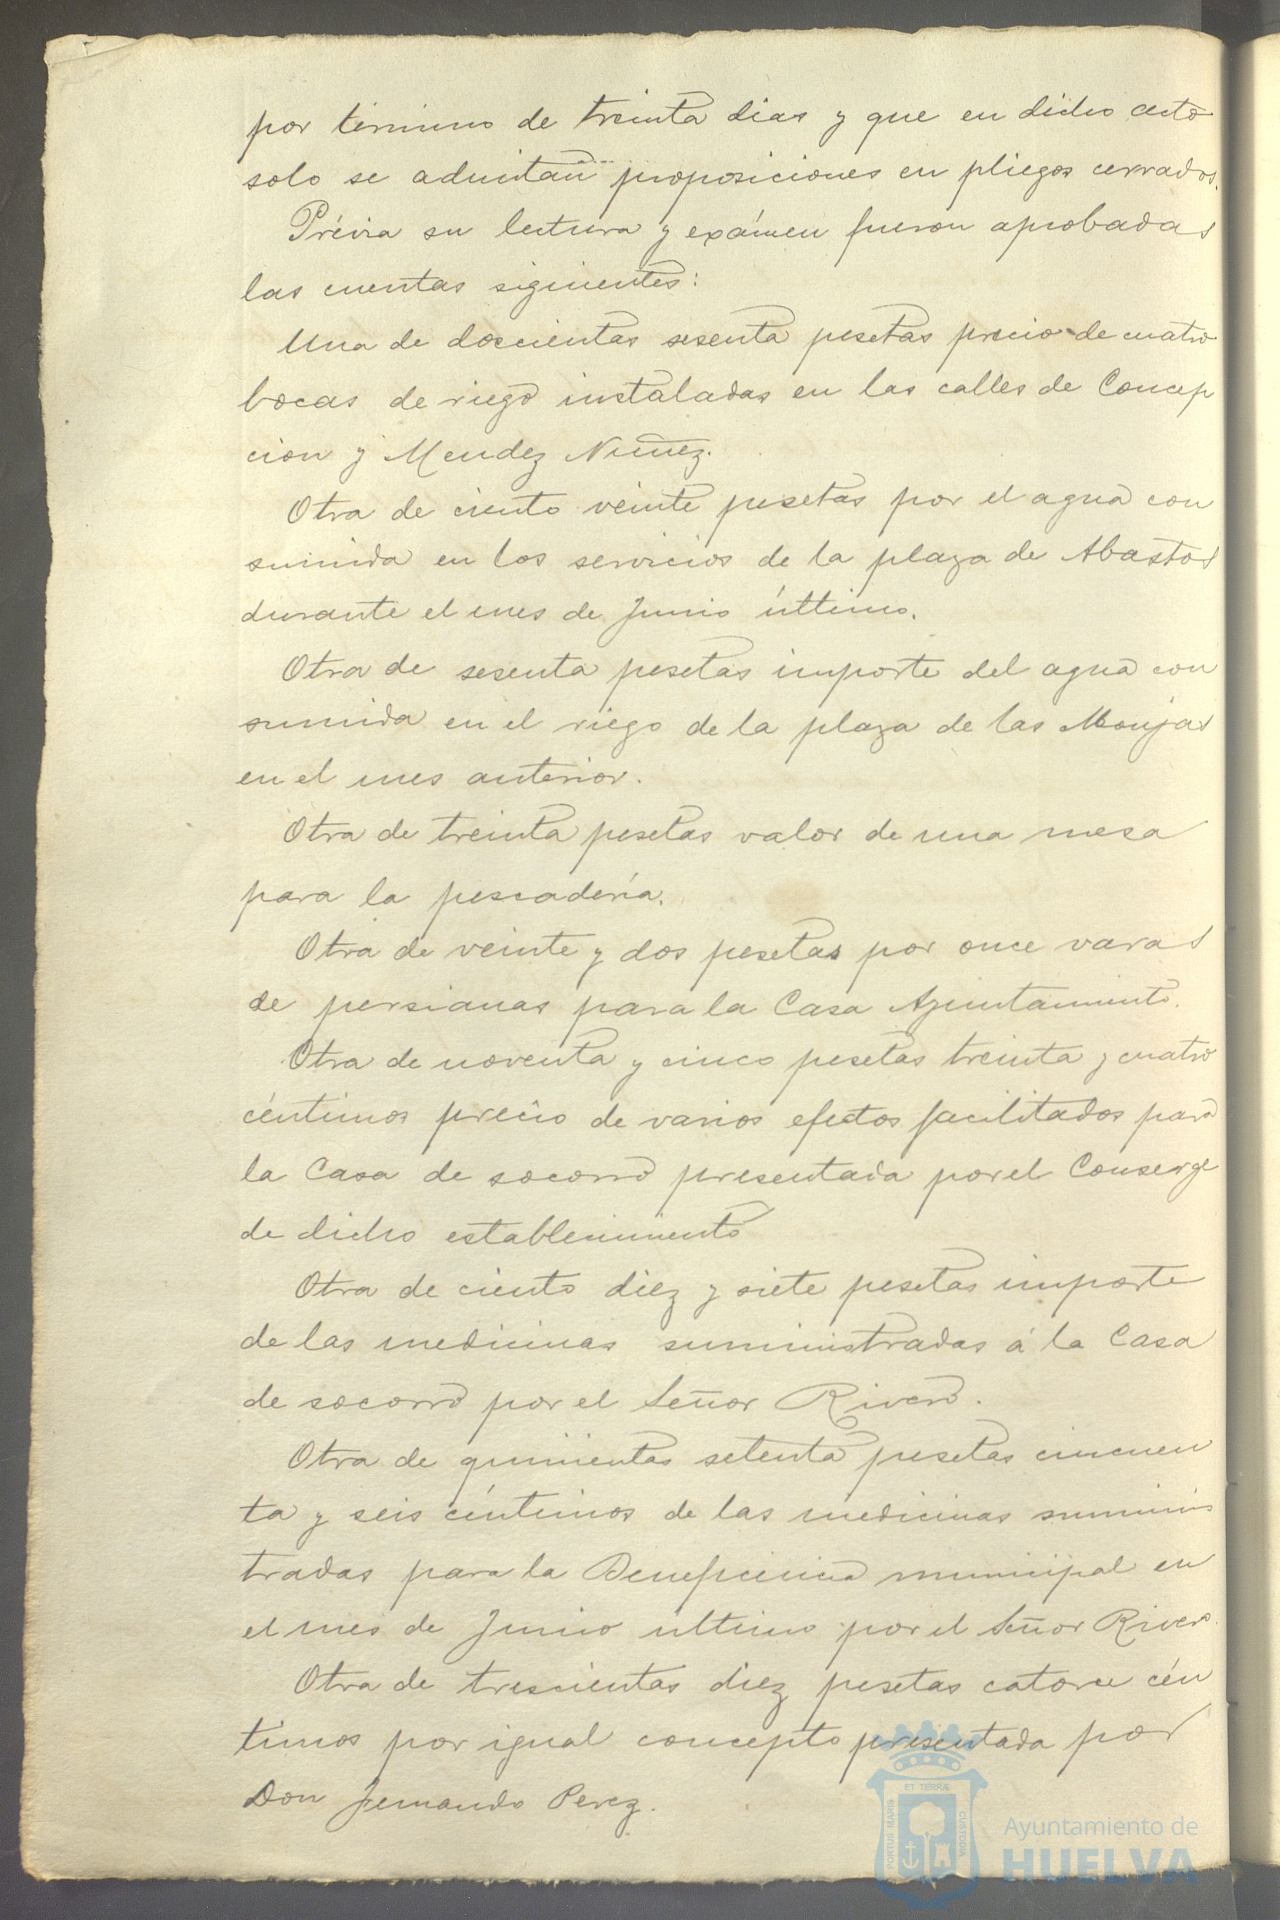 por término de treinta dias y que en dicho acto
solo se admitan proposiciones en pliegos cerrados.
Prévia su lectura y exámen fueron aprobadas
las cuentas siguientes:
Una de doscientas sesenta pesetas precio de cuatro
bocas de riego instaladas en las calles de Concep
cion y Mendez Nuñez.
Otra de ciento veinte pesetas por el agua con
sumida en los servicios de la plaza de Abastos
durante el mes de Junio último.
Otra de sesenta pesetas importe del agua con
sumida en el riego de la plaza de las Monjas
en el mes anterior.
Otra de treinta pesetas valor de una mesa
para la pescadería.
Otra de veinte y dos pesetas por once varas
de persianas para la Casa Ayuntamiento.
Otra de noventa y cinco pesetas treinta y cuatro
céntimos precio de varios efectos facilitados para
la Casa de socorro presentada por el Conserge
de dicho establecimiento
Otra de ciento diez y siete pesetas importe
de las medicinas suministradas á la Casa
de socorro por el Señor Rivero.
Otra de quinientas setenta pesetas cincuen
ta y seis céntimos de las medicinas suminis
tradas para la Beneficencia municipal en
el mes de Junio ultimo por el Señor Rivero.
Otra de trescientas diez pesetas catorce cén
timos por igual concepto presentada por
Don Fernando Perez.
PORTUS MARIS ET TERRÆ CUSTODIA
Ayuntamiento de
HUELVA